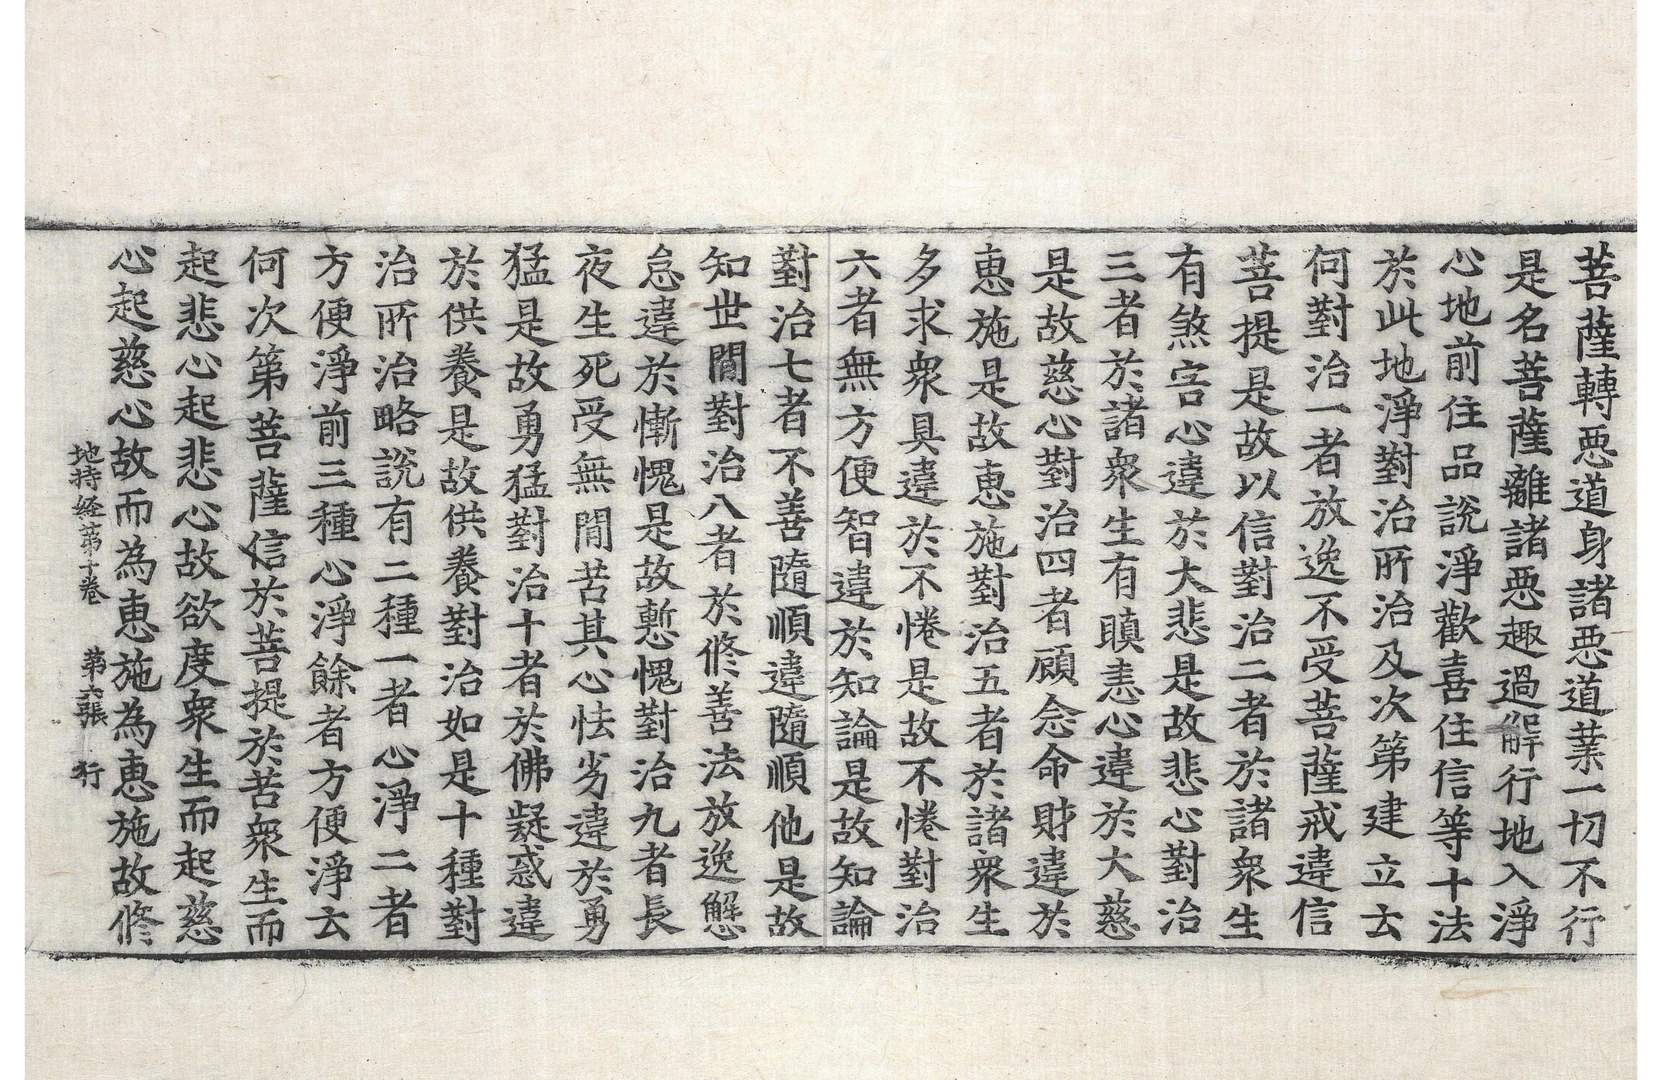 菩薩轉惡道身諸惡道業一切不行
是名菩薩離諸惡趣過解行地入淨
心地前住品說淨歡喜住信等十法
於此地淨對治所治及次第建立云
何對治一者放逸不受菩薩戒違信
菩提是故以信對治二者於諸衆生
有煞害心違於大悲是故悲心對治
三者於諸衆生有瞋恚心違於大慈
是故慈心對治四者顧念命財違於
惠施是故惠施對治五者於諸衆生
多求衆具違於不惓是故不惓對治
六者無方便智違於知論是故知論
對治七者不善隨順違隨順他是故
知世間對治八者於修善法放逸懈
怠違於慚愧是故慙愧對治九者長
夜生死受無閒苦其心怯劣違於勇
猛是故勇猛對治十者於佛疑惑違
於供養是故供養對治如是十種對
治所治略說有二種一者心淨二者
方便淨前三種心淨餘者方便淨云
何次第菩薩信於菩提於苦衆生而
起悲心起悲心故欲度衆生而起慈
心起慈心故而為惠施為惠施故修
地持経第十巻 第六張 行